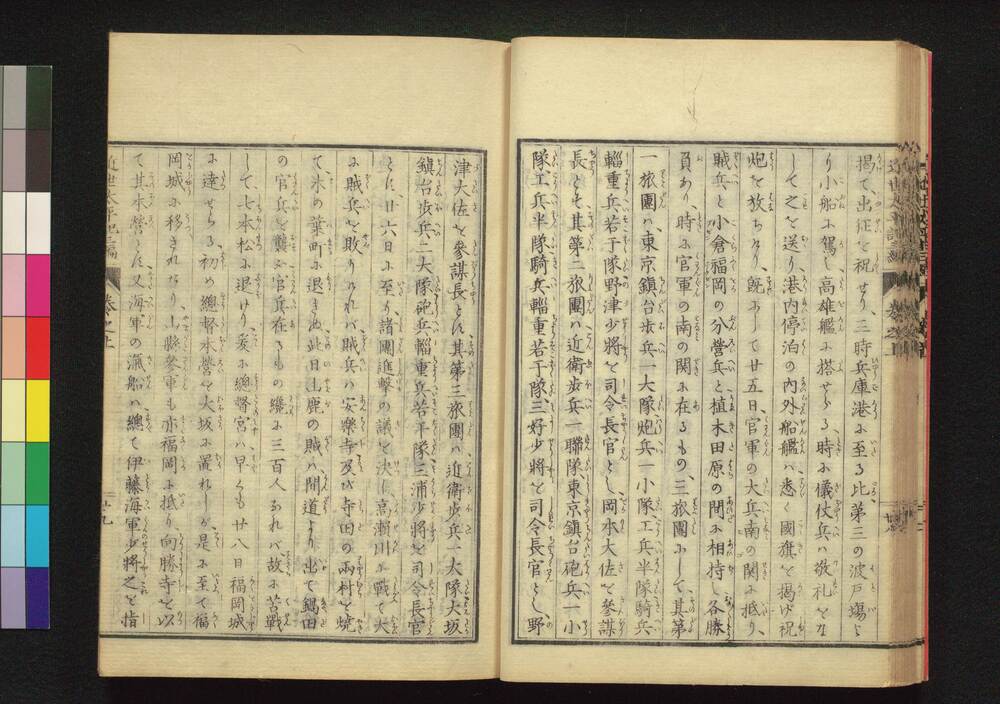 揚て、出征を祝せり、三時兵庫港に至る比、第三の波戸塲よ
り小船に駕し高雄艦に搭せらる、時に儀仗兵ハ敬礼をな
して之を送り、港内停泊の内外船艦ハ悉く國旗を掲げ祝
炮を放ちたり、既にして廿五日、官軍の大兵南の関に抵り、
賊兵と小倉福岡の分營兵と植木田原の間に相持し各勝
負あり、時に官軍の南の関に在るもの、三旅團にして、其第
一旅團ハ、東京鎮台歩兵一大隊炮兵一小隊工兵半隊騎兵
輜重兵若干隊、野津少將を司令長官とし、岡本大佐を參謀
長とし、其第二旅團ハ近衛歩兵一聯隊、東京鎮台砲兵一小
隊、工兵半隊騎兵輜重若干隊、三好少將を司令長官とし、野
津大佐を參謀長とし、其第三旅團ハ近衛歩兵一大隊大坂
鎮台歩兵二大隊砲兵輜重兵若干隊三浦少將を司令長官
とし、廿六日に至り諸團進撃の議を決し高瀬川に戰て大
に賊兵を敗りければ賊兵ハ安樂寺及び寺田の兩村を焼
て、木の葉町に退きぬ、此日山鹿の賊ハ間道より出て鍋田
の官兵を襲ふ官兵在るもの纔に三百人なれバ故に苦戰
して、七本松に退けり、爰に總督宮ハ早くも廿八日福岡城
に達せらる、初め總督本營を大坂に置れしが、是に至て福
岡城に移されたり、山縣參軍も亦福岡に抵り向勝寺を以
て其本營とし、又海軍の汽船ハ總て伊藤海軍少將之を指
近世太平記二編 巻之上 廿九